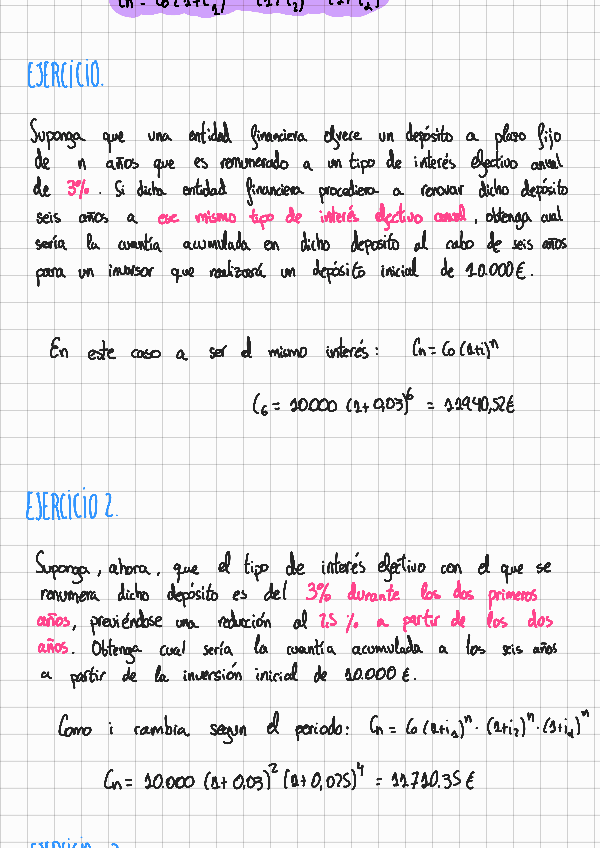 Cn = Co (1+i₁) (1+i₂) (1+i₃)
EJERCICIO.
Suponga que una entidad financiera ofrece un depósito a plazo fijo
de n años que es remunerado a un tipo de interés efectivo anual
de 3%. Si dicha entidad financiera procediera a renovar dicho depósito
seis años a ese mismo tipo de interés efectivo anual, obtenga cual
sería la cuantía acumulada en dicho deposito al cabo de seis años
para un inversor que realizará un depósito inicial de 10.000€.
En este caso a ser el mismo interés: Cn = Co (1+i)ⁿ
C₆ = 10.000 (1+0,03)⁶ = 11940,52€
EJERCICIO 2.
Suponga, ahora, que el tipo de interés efectivo con el que se
renumera dicho depósito es del 3% durante los dos primeros
años, previéndose una reducción al 2.5% a partir de los dos
años. Obtenga cual sería la cuantía acumulada a los seis años
a partir de la inversión inicial de 10.000€.
Como i cambia segun el periodo: Cn = Co (1+i₁)ⁿ · (1+i₂)ⁿ · (1+iₙ)ⁿ
Cn = 10.000 (1+0,03)² (1+0,025)⁴ = 11710.35€